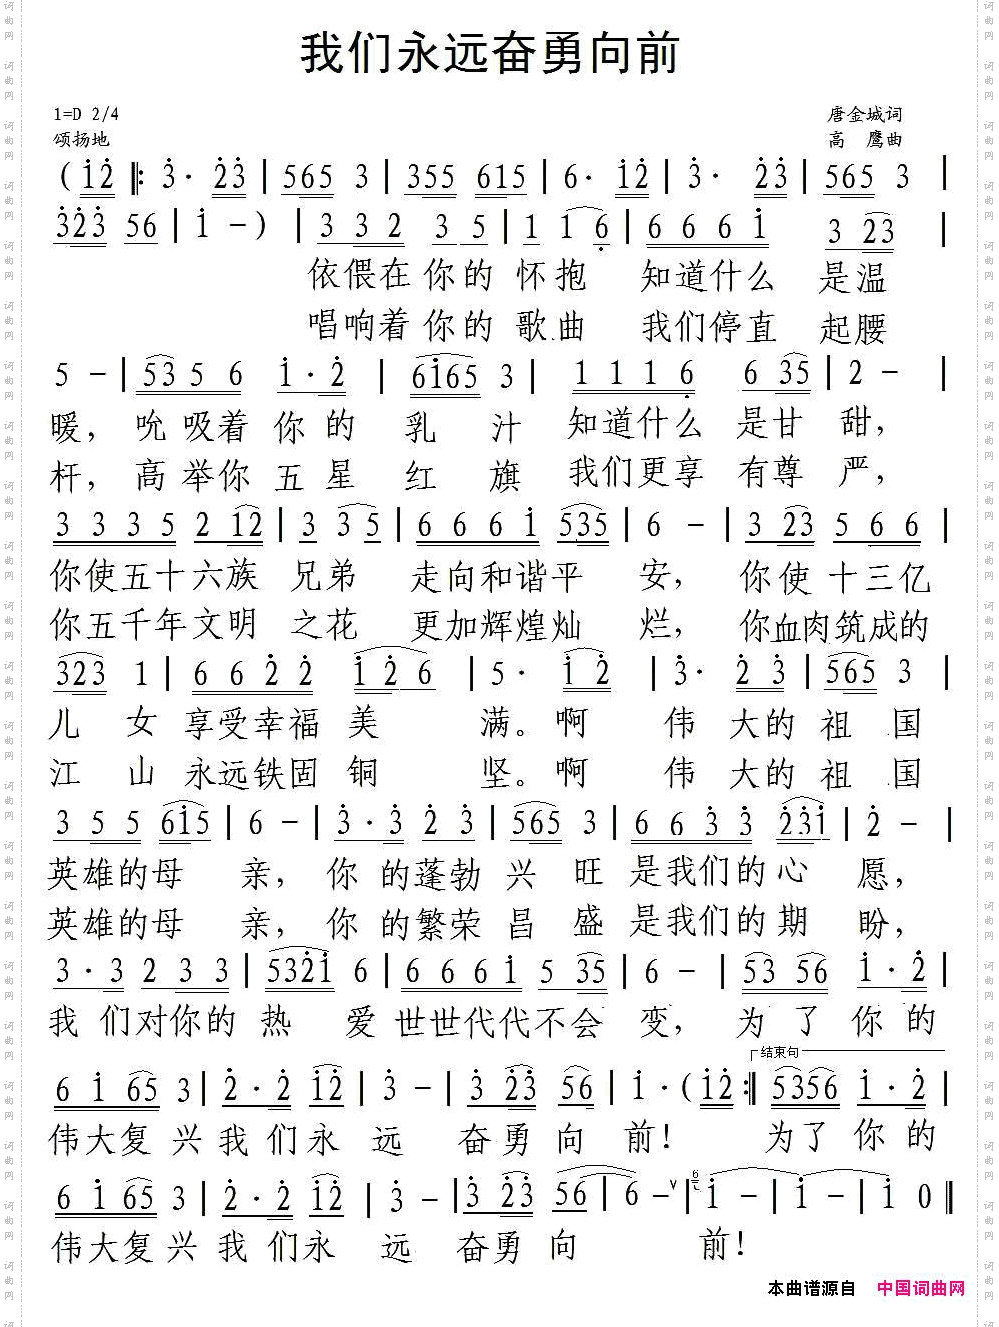 我们永远奋勇向前
1=D 2/4
唐金城词
颂扬地
高 鹰曲
(i̇2̇ ‖: 3̇· 2̇3̇ | 565 3 | 355 615 | 6· i̇2̇ | 3̇· 2̇3̇ | 565 3 |
3̇2̇3̇ 56 | i̇ -) | 3 3 2 3 5 | 1 1 6̣ | 6 6 6 i̇ 3 23 |
依偎在 你的 怀抱 知道什么 是温
唱响着 你的 歌曲 我们停直 起腰
5 - | 53 5 6 i̇·2̇ | 6i̇65 3 | 1 1 1 6̣ 6 35 | 2 - |
暖, 吮吸着 你的 乳 汁 知道什么 是甘 甜,
杆, 高举你 五星 红 旗 我们更享 有尊 严,
3 3 3 5 2 12 | 3 3 5 | 6 6 6 i̇ 535 | 6 - | 3 23 5 6 6 |
你使五十六族 兄弟 走向和谐平 安, 你使 十三亿
你五千年文明 之花 更加辉煌灿 烂, 你血肉筑成的
323 1 | 6 6 2̇ 2̇ i̇ 2̇ 6 | 5· i̇2̇ | 3̇· 2̇ 3̇ | 565 3 |
儿 女 享受幸福 美 满。啊 伟 大的 祖 国
江 山 永远铁固 铜 坚。啊 伟 大的 祖 国
3 5 5 6i̇5 | 6 - | 3̇·3̇ 2̇ 3̇ | 565 3 | 6 6 3̇ 3̇ 2̇3̇i̇ | 2̇ - |
英雄的母 亲, 你 的蓬勃 兴 旺 是我们的心 愿,
英雄的母 亲, 你 的繁荣 昌 盛 是我们的期 盼,
3·3 2 3 3 | 532̇i̇ 6 | 6 6 6 i̇ 5 35 | 6 - | 53 56 i̇·2̇ |
我 们对你的 热 爱 世世代代不会 变, 为 了 你 的
结束句
6 i̇ 65 3 | 2̇·2̇ i̇2̇ | 3̇ - | 3̇ 2̇3̇ 56 | i̇·(i̇2̇ :‖ 5356 i̇·2̇ |
伟大复 兴 我 们永 远 奋勇 向 前! 为了 你 的
6 i̇ 65 3 | 2̇·2̇ i̇2̇ | 3̇ - | 3̇ 2̇3̇ 56 | 6 -∨ | 6 i̇ - | i̇ - | i̇ 0 ‖
伟大复 兴 我 们永 远 奋勇 向 前!
本曲谱源自 中国词曲网